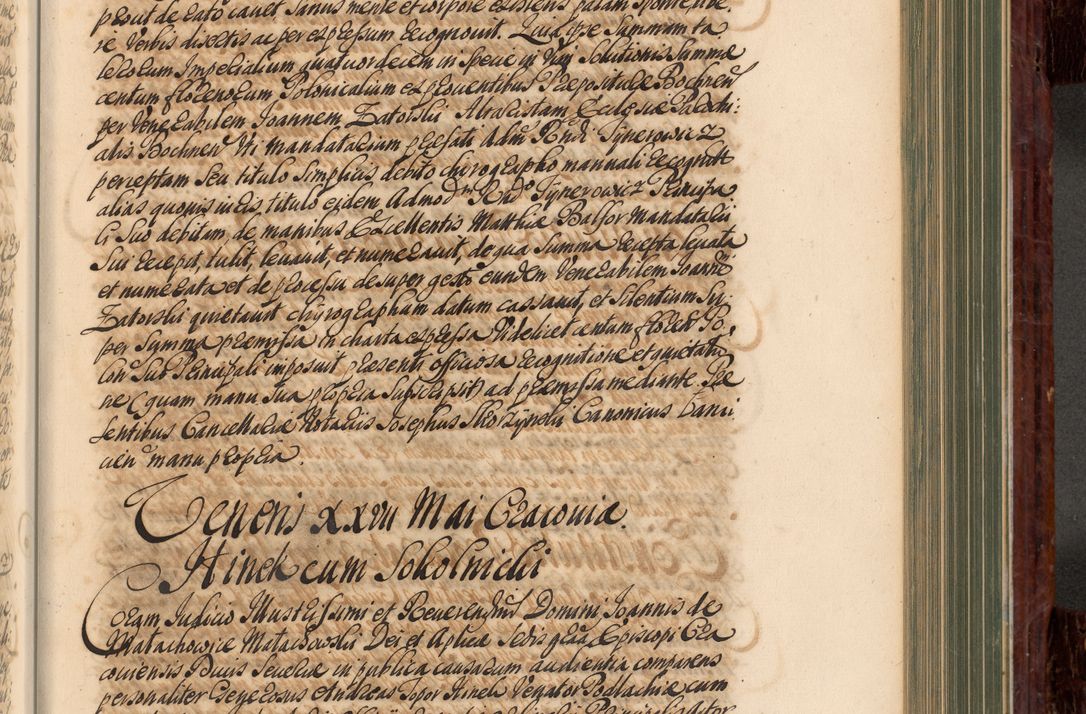 prout de dato cavet sanus mente et corpore existens palam sponte libe
re verbis disertis ac per expressum recognovit. Quia ipse summam ta
lerorum Imperialium quatuordecim in specie in vim solutionis summæ
centum florenorum Polonicalium ex proventibus Præpositurae Bochnen
per Venerabilem Joannem Zatorski Altaristam Ecclesiæ Parochi:
alis Bochnen Uti mandatarium præfati Adm Rndi Tynerowicz
perceptam seu titulo simplicis debito chirographo manuali recognitt
alias quovis iuris titulo eidem Admodm Rndo Tynerowicz Principa
li suo debitam, de manibus Excellentis Matthiæ Balsor Mandatarii
sui recepit, tulit, levavit, et numeravit, de qua summa recepta levata
et numerata et de processu desuper gesto eundem Venerabilem Joannē
Zatorski quietavit chyrographum datum cassavit, et silentium su,
per summa præmissa in charta expressa videlicet centum floren Po,
lon sub Principali imposuit præsenti officiosa recognitione et quietatio
ne (quam manu sua propria subscripsit) ad præmissa mediante. Præ
sentibus Cancellariæ Notariis Josephus Skorzynski Canonicus Sanci
cien manu propria.
Veneris XXVII Mai Cracoviæ.
Hinek cum Sokolnicki
Coram Judicio Illustrissimi et Reverendissmi Domini Joannis de
Małachowice Małachowski Dei et Aplicæ Sedis gra Episcopi Cra
coviensis Ducis Severiæ in publica causarum audientia comparens
personaliter Generosus Andreas Topor Hinek Venator Podlachiæ cum